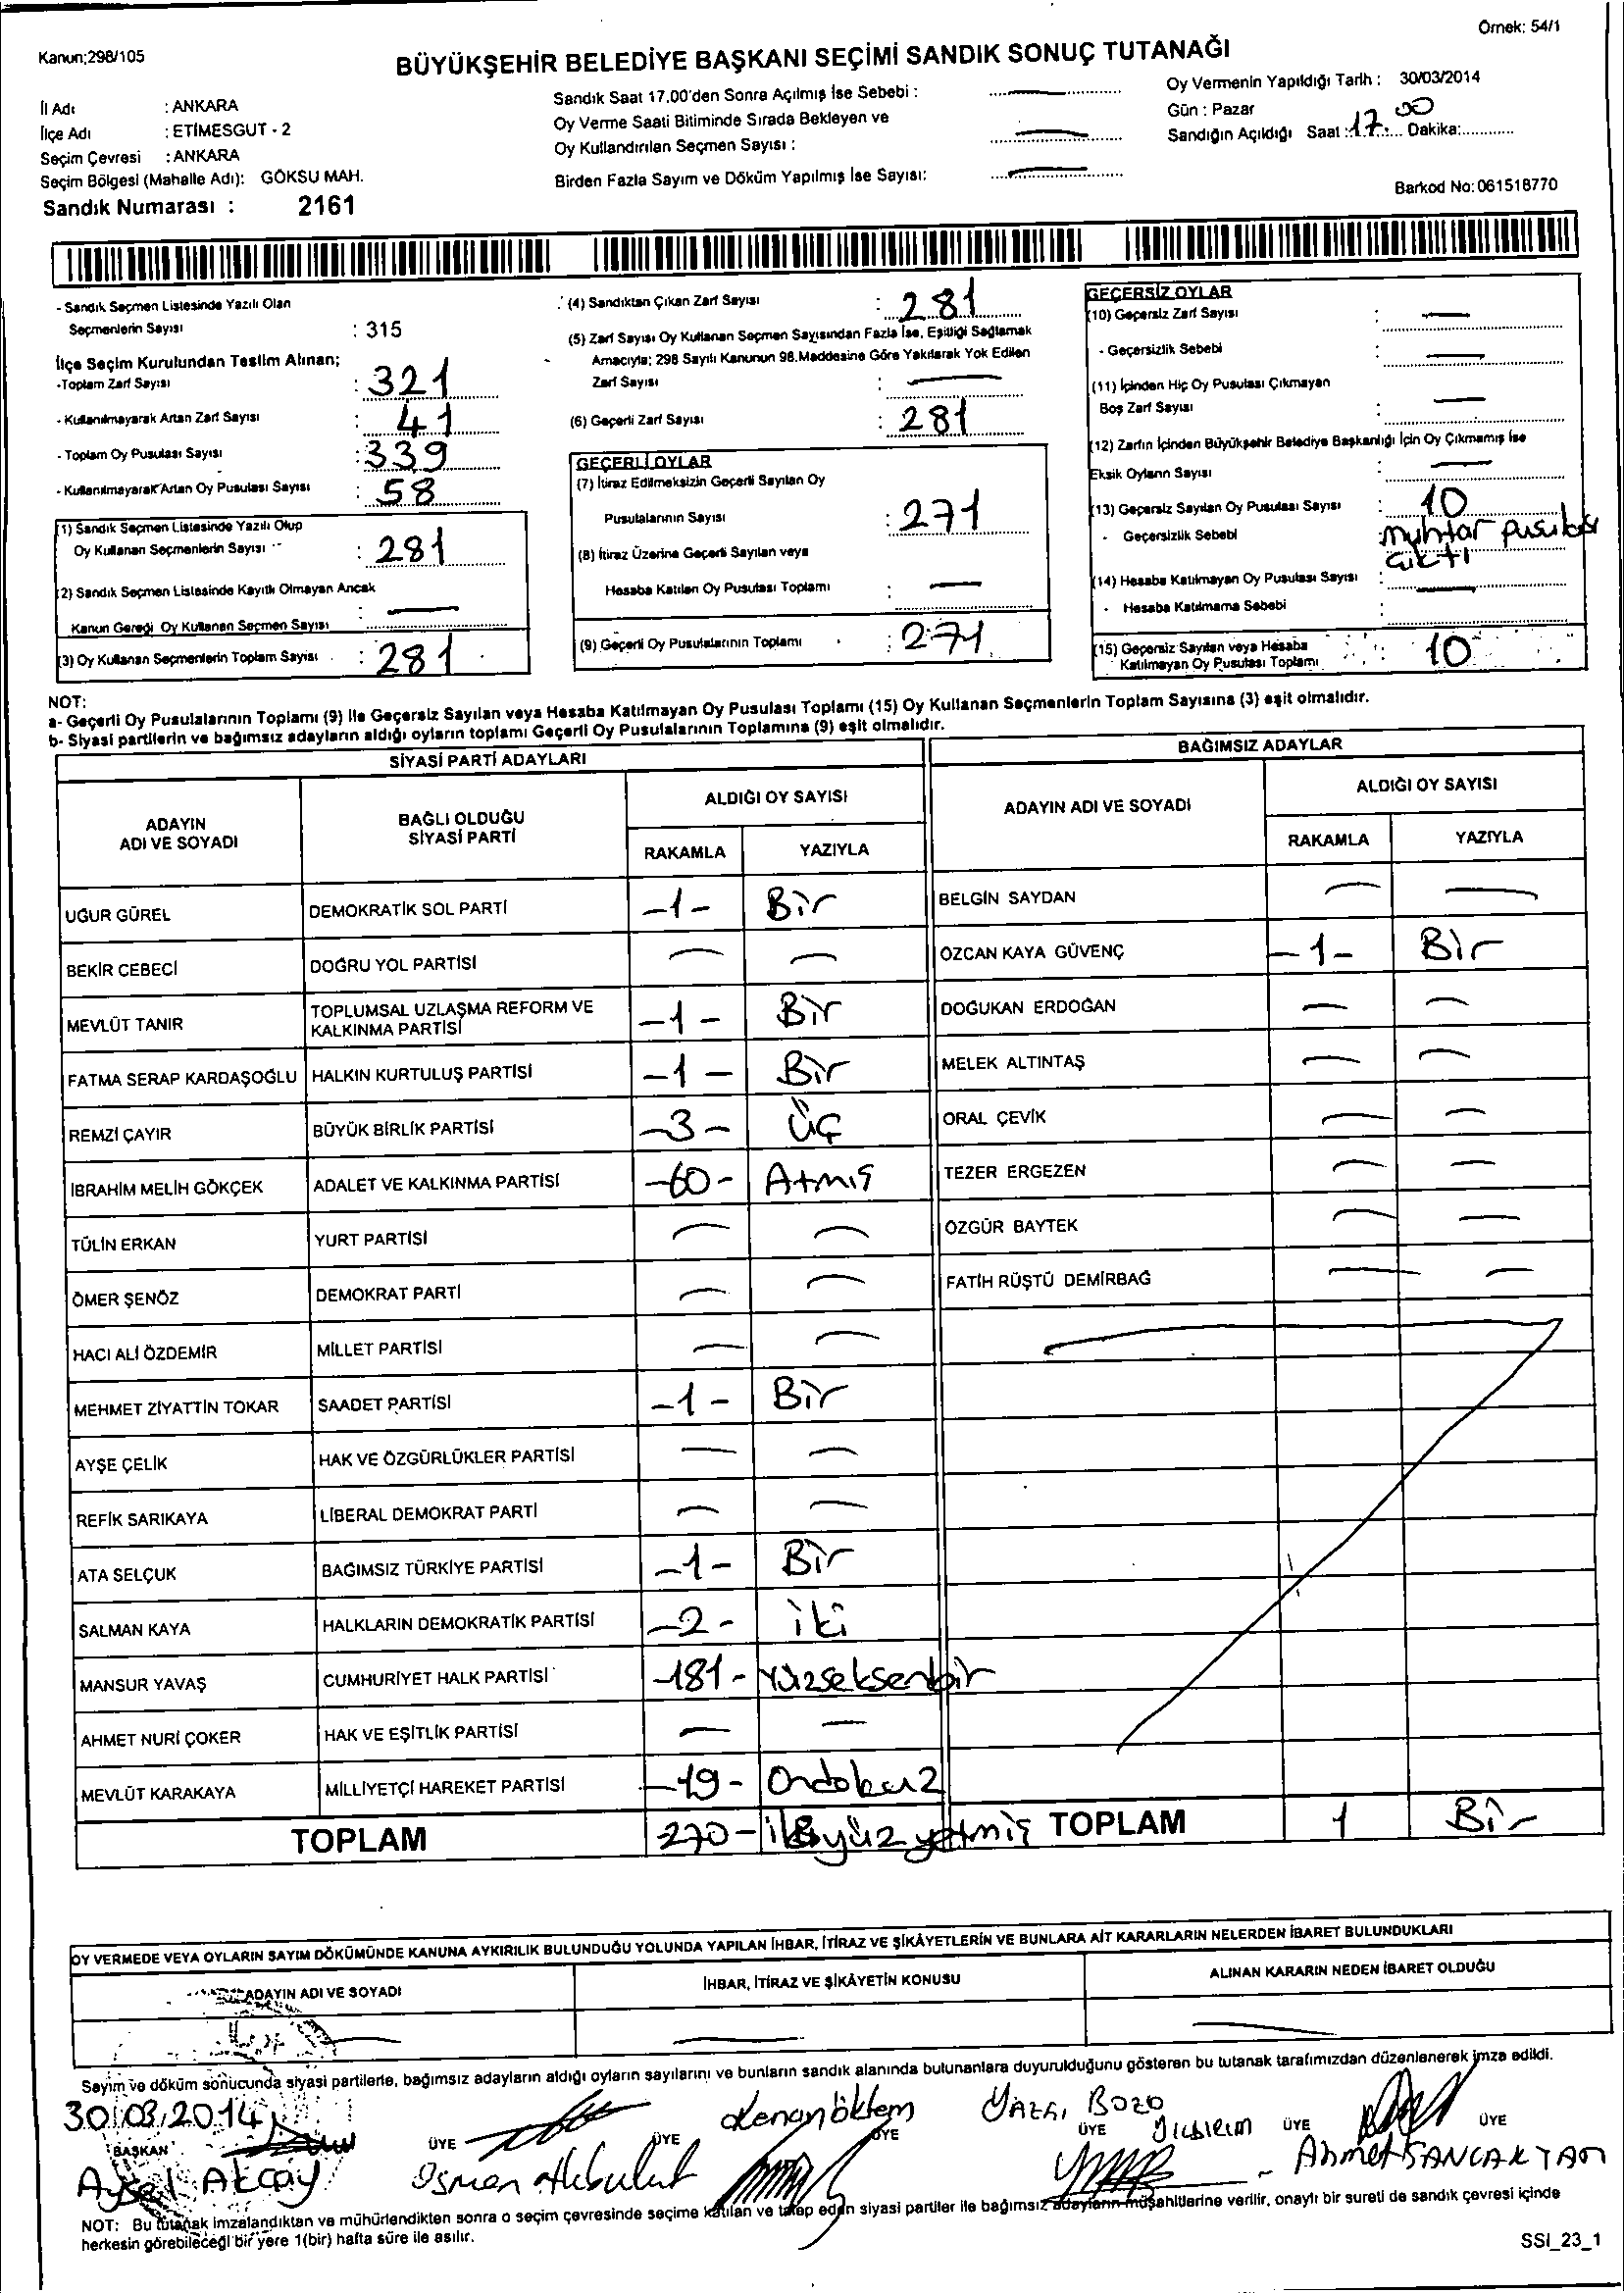 Örnek: 54/1
Kanun;298/105
BÜYÜKŞEHİR BELEDİYE BAŞKANI SEÇİMİ SANDIK SONUÇ TUTANAĞI
İl Adı : ANKARA
İlçe Adı : ETİMESGUT - 2
Seçim Çevresi : ANKARA
Seçim Bölgesi (Mahalle Adı): GÖKSU MAH.
Sandık Numarası : 2161
Sandık Saat 17.00'den Sonra Açılmış İse Sebebi : —
Oy Verme Saati Bitiminde Sırada Bekleyen ve
Oy Kullandırılan Seçmen Sayısı : —
Birden Fazla Sayım ve Döküm Yapılmış İse Sayısı: —
Oy Vermenin Yapıldığı Tarih : 30/03/2014
Gün : Pazar
Sandığın Açıldığı Saat : 17 Dakika: 00
Barkod No: 061518770
- Sandık Seçmen Listesinde Yazılı Olan
Seçmenlerin Sayısı : 315
İlçe Seçim Kurulundan Teslim Alınan;
-Toplam Zarf Sayısı : 321
- Kullanılmayarak Artan Zarf Sayısı : 41
- Toplam Oy Pusulası Sayısı : 339
- Kullanılmayarak Artan Oy Pusulası Sayısı : 58
(1) Sandık Seçmen Listesinde Yazılı Olup
Oy Kullanan Seçmenlerin Sayısı : 281
(2) Sandık Seçmen Listesinde Kayıtlı Olmayan Ancak
Kanun Gereği Oy Kullanan Seçmen Sayısı : —
(3) Oy Kullanan Seçmenlerin Toplam Sayısı : 281
(4) Sandıktan Çıkan Zarf Sayısı : 281
(5) Zarf Sayısı Oy Kullanan Seçmen Sayısından Fazla İse, Eşitliği Sağlamak
Amacıyla; 298 Sayılı Kanunun 98.Maddesine Göre Yakılarak Yok Edilen
Zarf Sayısı : —
(6) Geçerli Zarf Sayısı : 281
GEÇERLİ OYLAR
(7) İtiraz Edilmeksizin Geçerli Sayılan Oy
Pusulalarının Sayısı : 271
(8) İtiraz Üzerine Geçerli Sayılan veya
Hesaba Katılan Oy Pusulası Toplamı : —
(9) Geçerli Oy Pusulalarının Toplamı : 271
GEÇERSİZ OYLAR
(10) Geçersiz Zarf Sayısı : —
- Geçersizlik Sebebi : —
(11) İçinden Hiç Oy Pusulası Çıkmayan
Boş Zarf Sayısı : —
(12) Zarfın İçinden Büyükşehir Belediye Başkanlığı İçin Oy Çıkmamış İse
Eksik Oyların Sayısı : —
(13) Geçersiz Sayılan Oy Pusulası Sayısı : 10
- Geçersizlik Sebebi : muhtar pusulası
çıktı
(14) Hesaba Katılmayan Oy Pusulası Sayısı : —
- Hesaba Katılmama Sebebi :
(15) Geçersiz Sayılan veya Hesaba
Katılmayan Oy Pusulası Toplamı : 10
NOT:
a- Geçerli Oy Pusulalarının Toplamı (9) ile Geçersiz Sayılan veya Hesaba Katılmayan Oy Pusulası Toplamı (15) Oy Kullanan Seçmenlerin Toplam Sayısına (3) eşit olmalıdır.
b- Siyasi partilerin ve bağımsız adayların aldığı oyların toplamı Geçerli Oy Pusulalarının Toplamına (9) eşit olmalıdır.
SİYASİ PARTİ ADAYLARI
ADAYIN ADI VE SOYADI BAĞLI OLDUĞU SİYASİ PARTİ ALDIĞI OY SAYISI
RAKAMLA YAZIYLA
UĞUR GÜREL DEMOKRATİK SOL PARTİ -1- Bir
BEKİR CEBECİ DOĞRU YOL PARTİSİ — —
MEVLÜT TANIR TOPLUMSAL UZLAŞMA REFORM VE KALKINMA PARTİSİ -1- Bir
FATMA SERAP KARDAŞOĞLU HALKIN KURTULUŞ PARTİSİ -1- Bir
REMZİ ÇAYIR BÜYÜK BİRLİK PARTİSİ -3- Üç
İBRAHİM MELİH GÖKÇEK ADALET VE KALKINMA PARTİSİ -60- Atmış
TÜLİN ERKAN YURT PARTİSİ — —
ÖMER ŞENÖZ DEMOKRAT PARTİ — —
HACI ALİ ÖZDEMİR MİLLET PARTİSİ — —
MEHMET ZİYATTİN TOKAR SAADET PARTİSİ -1- Bir
AYŞE ÇELİK HAK VE ÖZGÜRLÜKLER PARTİSİ — —
REFİK SARIKAYA LİBERAL DEMOKRAT PARTİ — —
ATA SELÇUK BAĞIMSIZ TÜRKİYE PARTİSİ -1- Bir
SALMAN KAYA HALKLARIN DEMOKRATİK PARTİSİ -2- iki
MANSUR YAVAŞ CUMHURİYET HALK PARTİSİ -181- Yüzseksenbir
AHMET NURİ ÇOKER HAK VE EŞİTLİK PARTİSİ — —
MEVLÜT KARAKAYA MİLLİYETÇİ HAREKET PARTİSİ -19- Ondokuz
TOPLAM 270- ikiyüz yetmiş
BAĞIMSIZ ADAYLAR
ADAYIN ADI VE SOYADI ALDIĞI OY SAYISI
RAKAMLA YAZIYLA
BELGİN SAYDAN — —
ÖZCAN KAYA GÜVENÇ -1- Bir
DOĞUKAN ERDOĞAN — —
MELEK ALTINTAŞ — —
ORAL ÇEVİK — —
TEZER ERGEZEN — —
ÖZGÜR BAYTEK — —
FATİH RÜŞTÜ DEMİRBAĞ — —
TOPLAM 1 Bir
OY VERMEDE VEYA OYLARIN SAYIM DÖKÜMÜNDE KANUNA AYKIRILIK BULUNDUĞU YOLUNDA YAPILAN İHBAR, İTİRAZ VE ŞİKÂYETLERİN VE BUNLARA AİT KARARLARIN NELERDEN İBARET BULUNDUKLARI
ADAYIN ADI VE SOYADI İHBAR, İTİRAZ VE ŞİKÂYETİN KONUSU ALINAN KARARIN NEDEN İBARET OLDUĞU
— — —
Sayım ve döküm sonucunda siyasi partilerle, bağımsız adayların aldığı oyların sayılarını ve bunların sandık alanında bulunanlara duyurulduğunu gösteren bu tutanak tarafımızdan düzenlenerek imza edildi.
30.03.2014
BAŞKAN ÜYE ÜYE ÜYE ÜYE ÜYE ÜYE
Aysel Akçay
Osman Akbulut
Kenan öktem
YAZGI BOZO
YILDIRIM
Ahmet SANCAKTAR
NOT: Bu tutanak imzalandıktan ve mühürlendikten sonra o seçim çevresinde seçime katılan ve talep eden siyasi partiler ile bağımsız adayların müşahitlerine verilir, onaylı bir sureti de sandık çevresi içinde
herkesin görebileceği bir yere 1(bir) hafta süre ile asılır.
SSI_23_1